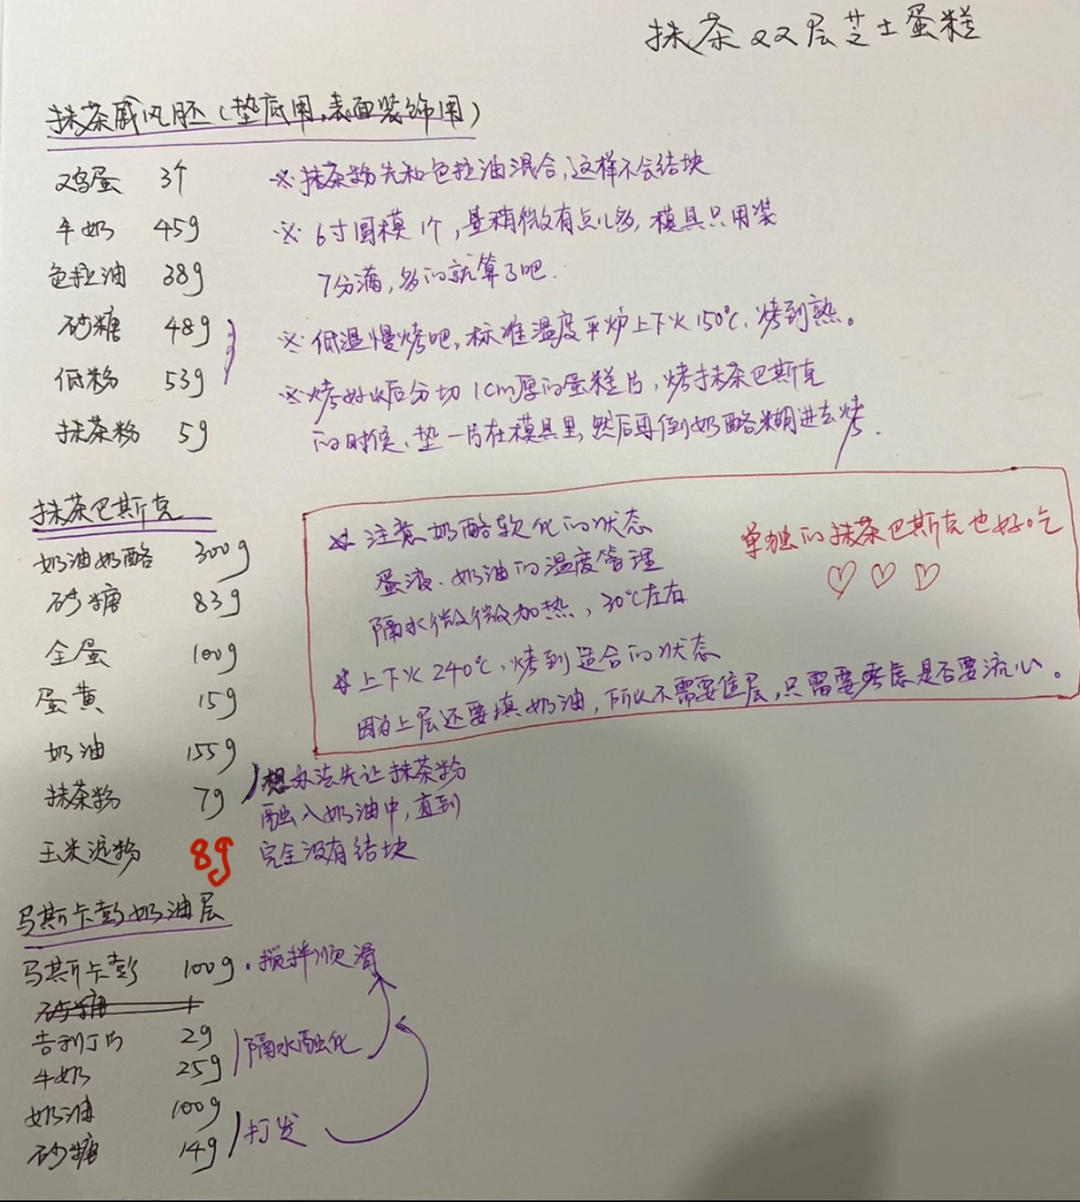 抹茶双层芝士蛋糕
抹茶戚风胚(垫底用,表面装饰用)
鸡蛋 3个
牛奶 45g
色拉油 38g
砂糖 48g
低粉 53g
抹茶粉 5g
※抹茶粉先和色拉油混合,这样不会结块
※6寸圆模1个,量稍微有点儿多,模具只用装
7分满,多的就算了吧.
※低温慢烤吧,标准温度平炉上下火150℃.烤到熟。
※烤好以后分切1cm厚的蛋糕片,烤抹茶巴斯克
的时候、垫一片在模具里,然后再倒奶酪糊进去烤.
抹茶巴斯克
奶油奶酪 300g
砂糖 83g
全蛋 100g
蛋黄 15g
奶油 155g
抹茶粉 7g
玉米淀粉 8g
注意奶酪软化的状态
蛋液、奶油的温度管理
隔水微微加热,30℃左右
上下火240℃,烤到适合的状态
因为上层还要填奶油,所以不需要位层,只需要考虑是否要流心。
单独的抹茶巴斯克也好吃
♡ ♡ ♡
想办法先让抹茶粉
融入奶油中,直到
完全没有结块
马斯卡彭奶油层
马斯卡彭 100g.搅拌顺滑
砂糖
吉利丁片 2g
牛奶 25g
隔水融化
奶油 100g
砂糖 14g
打发